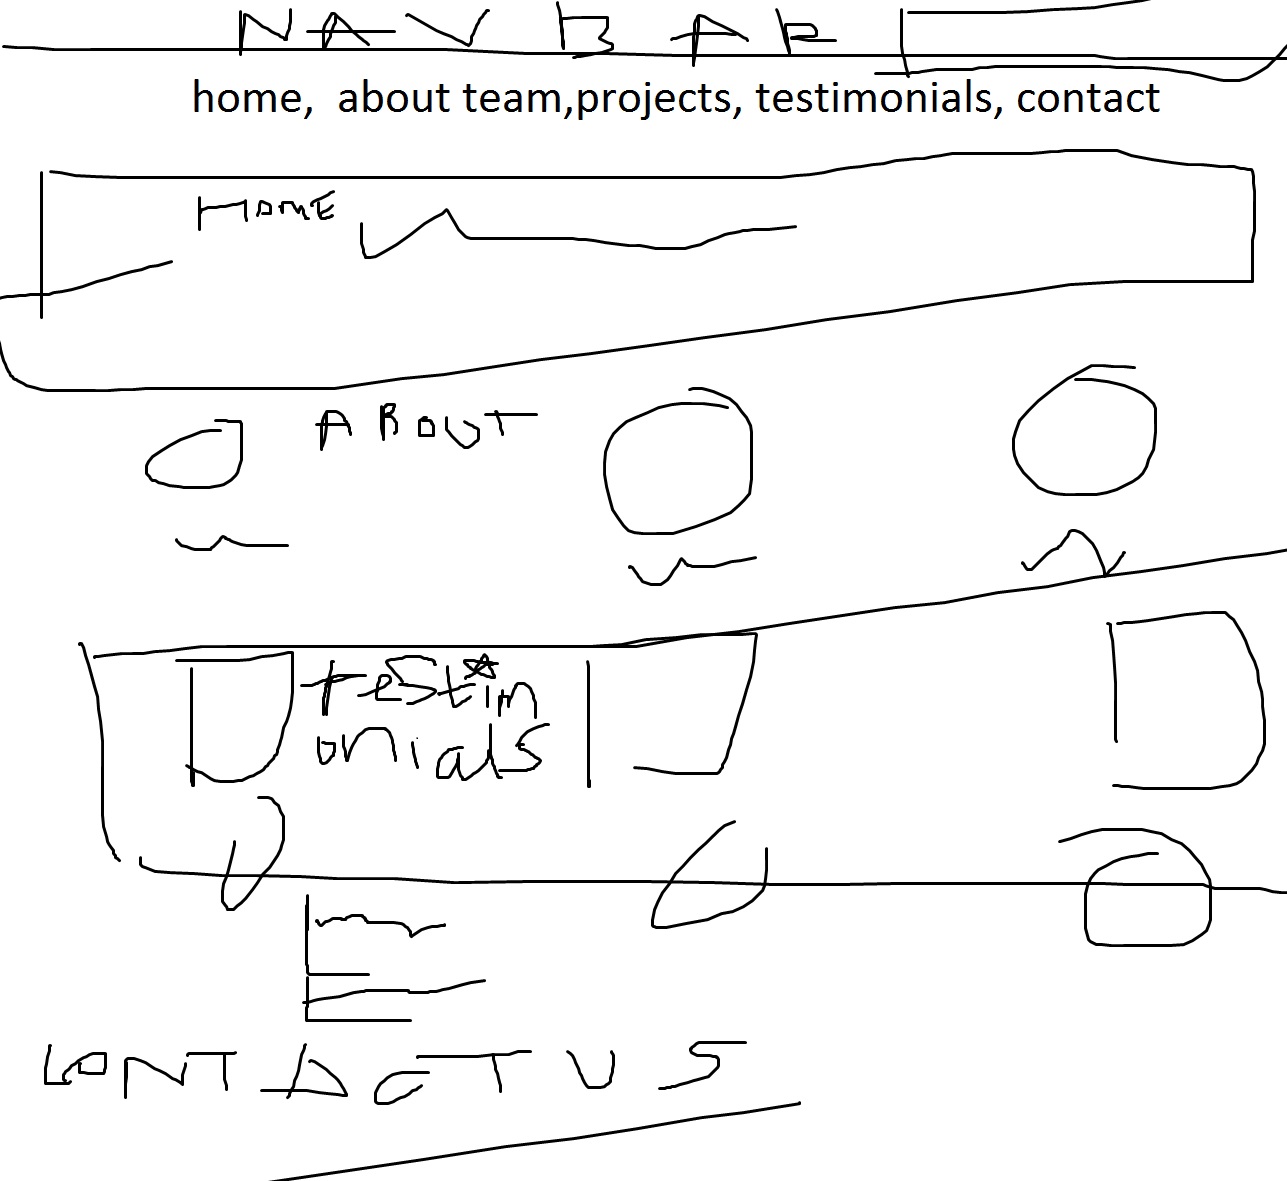 NAV BAR
home,  about team,projects, testimonials, contact
HOME
ABOUT
testim
onials
CONTACT US